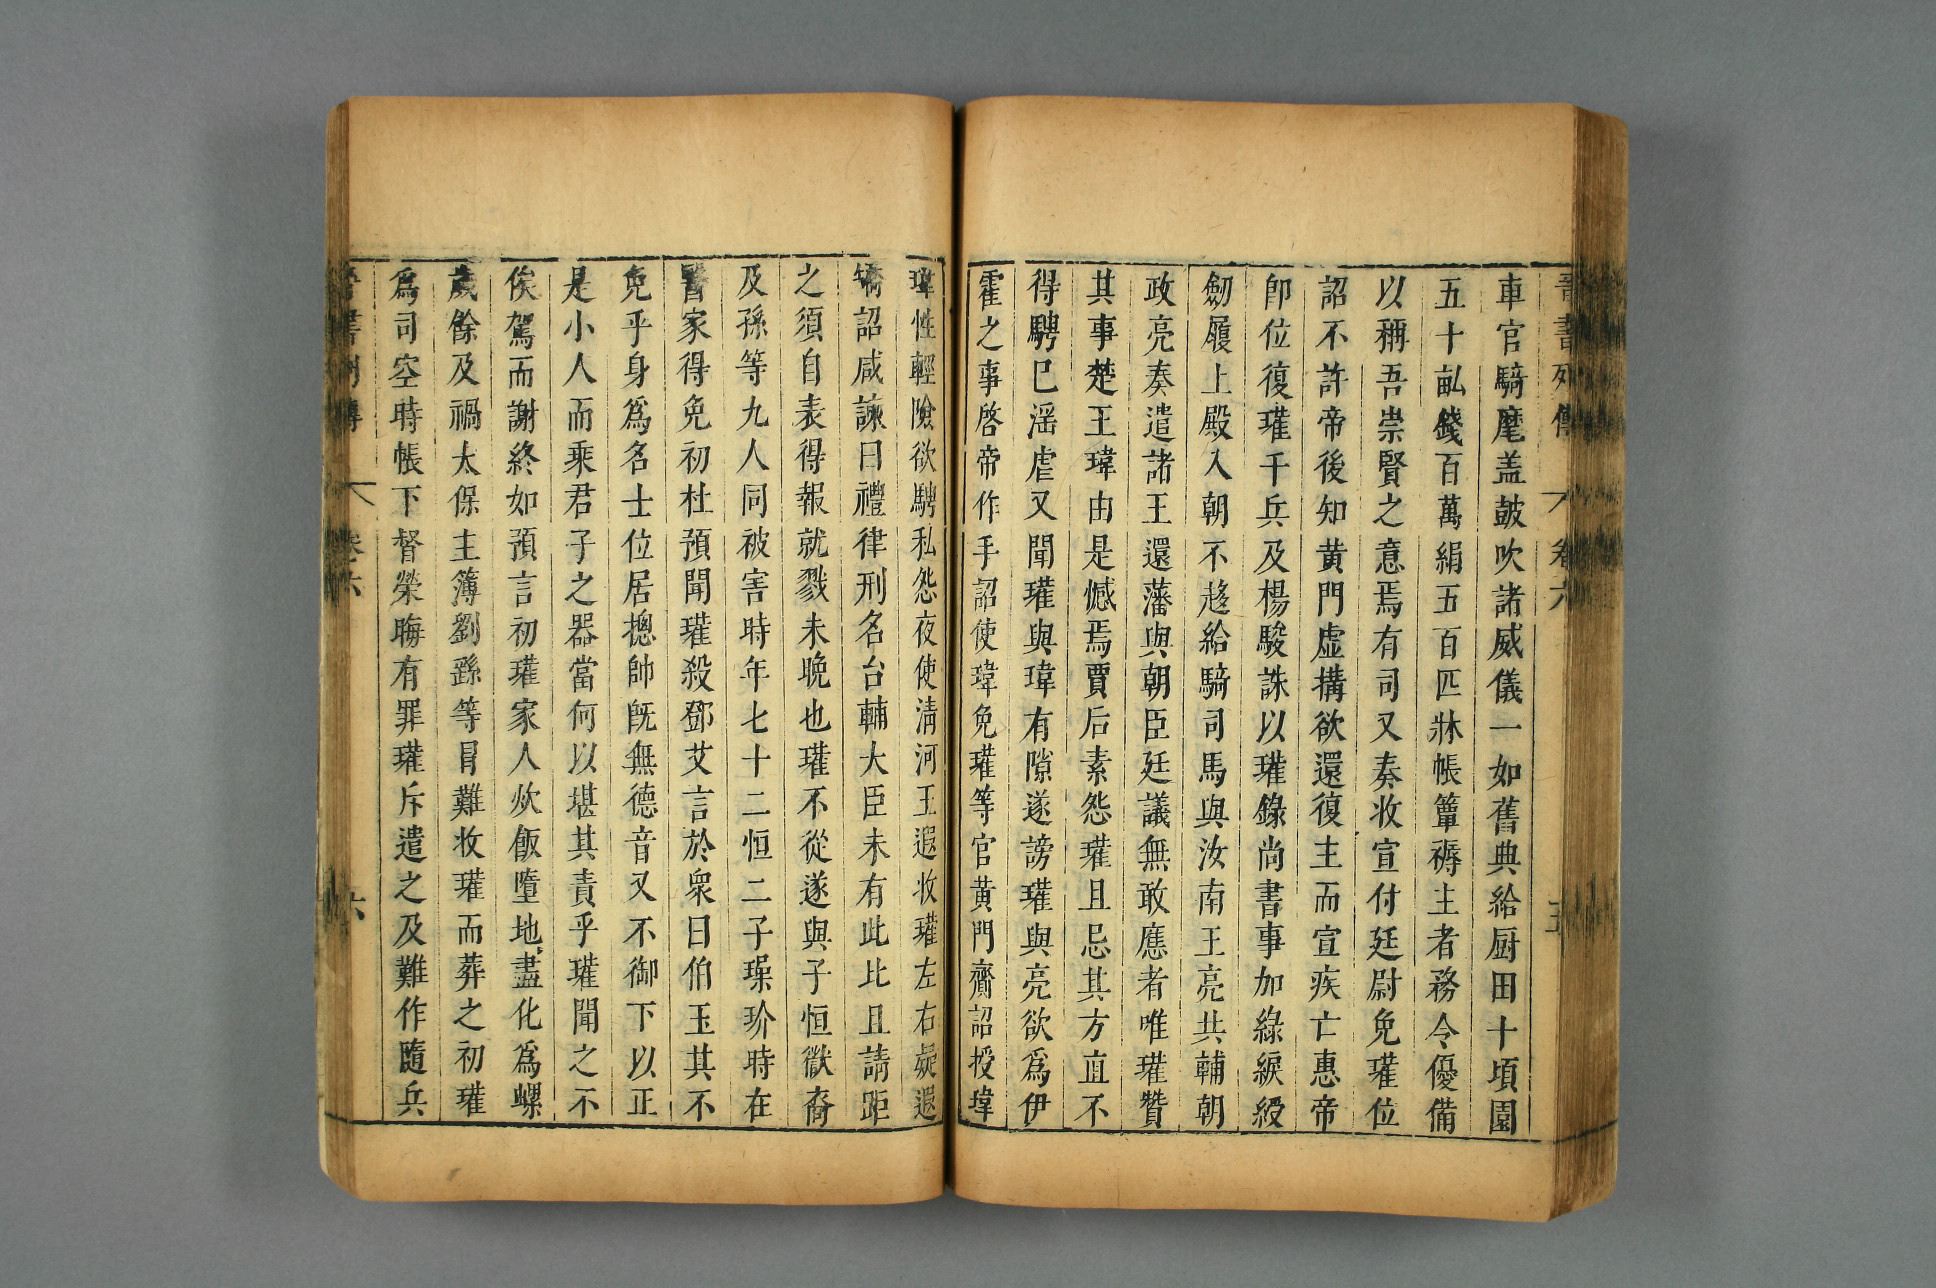 晉書列傳 卷六 五
車官騎麾盖鼓吹諸威儀一如舊典給厨田十頃園
五十畝錢百萬絹五百匹牀帳簟褥主者務令優備
以稱吾崇賢之意焉有司又奏收宣付廷尉免瓘位
詔不許帝後知黄門虚構欲還復主而宣疾亡惠帝
卽位復瓘千兵及楊駿誅以瓘錄尚書事加綠綟綬
劒履上殿入朝不趍給騎司馬與汝南王亮共輔朝
政亮奏遣諸王還藩與朝臣廷議無敢應者唯瓘贊
其事楚王瑋由是憾焉賈后素怨瓘且忌其方直不
得騁巳滛虐又聞瓘與瑋有隙遂謗瓘與亮欲爲伊
霍之事啓帝作手詔使瑋免瓘等官黄門齎詔授瑋
瑋性輕險欲騁私怨夜使淸河王遐收瓘左右疑遐
矯詔咸諫曰禮律刑名台輔大臣未有此比且請距
之須自表得報就戮未晩也瓘不從遂與子恒嶽裔
及孫等九人同被害時年七十二恒二子璪玠時在
醫家得免初杜預聞瓘殺鄧艾言於衆曰伯玉其不
免乎身爲名士位居摠帥旣無德音又不御下以正
是小人而乘君子之器當何以堪其責乎瓘聞之不
俟駕而謝終如預言初瓘家人炊飯墮地盡化爲螺
歲餘及禍太保主簿劉繇等冒難收瓘而葬之初瓘
爲司空時帳下督榮晦有罪瓘斥遣之及難作隨兵
晉書列傳 卷六 六